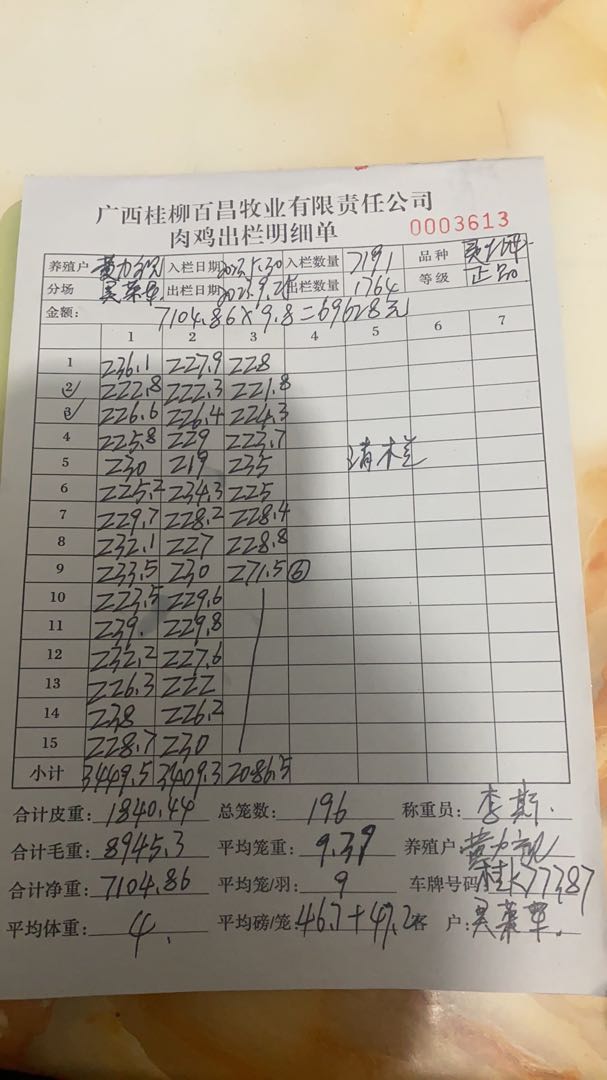 广西桂柳百昌牧业有限责任公司
肉鸡出栏明细单 0003613
养殖户 黄力 入栏日期 入栏数量 7191 品种
分场 吴荣军 出栏日期 出栏数量 1764 等级 正品
金额: 7104.86×9.8=69628元
1 2 3 4 5 6 7
1 236.1 227.9 228
2 222.8 222.3 221.8
3 226.6 226.4 224.3
4 225.8 229 223.7
5 230 219 235 清栏
6 225.2 234.3 225
7 229.7 228.2 228.4
8 232.1 227 228.8
9 233.5 230 271.5 ⑥
10 223.5 229.6
11 239. 229.8
12 232.2 227.6
13 226.3 222
14 238 226.2
15 228.7 230
小计 3449.5 3409.3 2086.5
合计皮重: 1840.44 总笼数: 196 称重员: 李斯.
合计毛重: 8945.3 平均笼重: 9.39 养殖户 黄力
合计净重: 7104.86 平均笼/羽: 9 车牌号码 桂K77387
平均体重: 4. 平均磅/笼: 46.7+47.2 客 户: